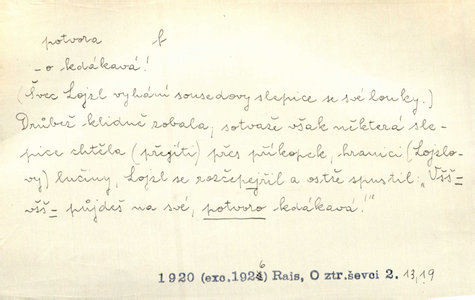 potvora f
- o kdákavá!
(Švec Lojzl vyhání sousedovy slepice se své louky.)
Drůbež klidně zobala, sotvaže však některá sle-
pice chtěla (přejíti) přes příkopek, hranici (Lojzlo-
vy) lučiny, Lojzl se rozčepejřil a ostře spustil: „Všš-
všš= půjdeš na své, potvoro kdákavá!"
1920 (exc. 1926) Rais, O ztr.ševci 2. 13,19